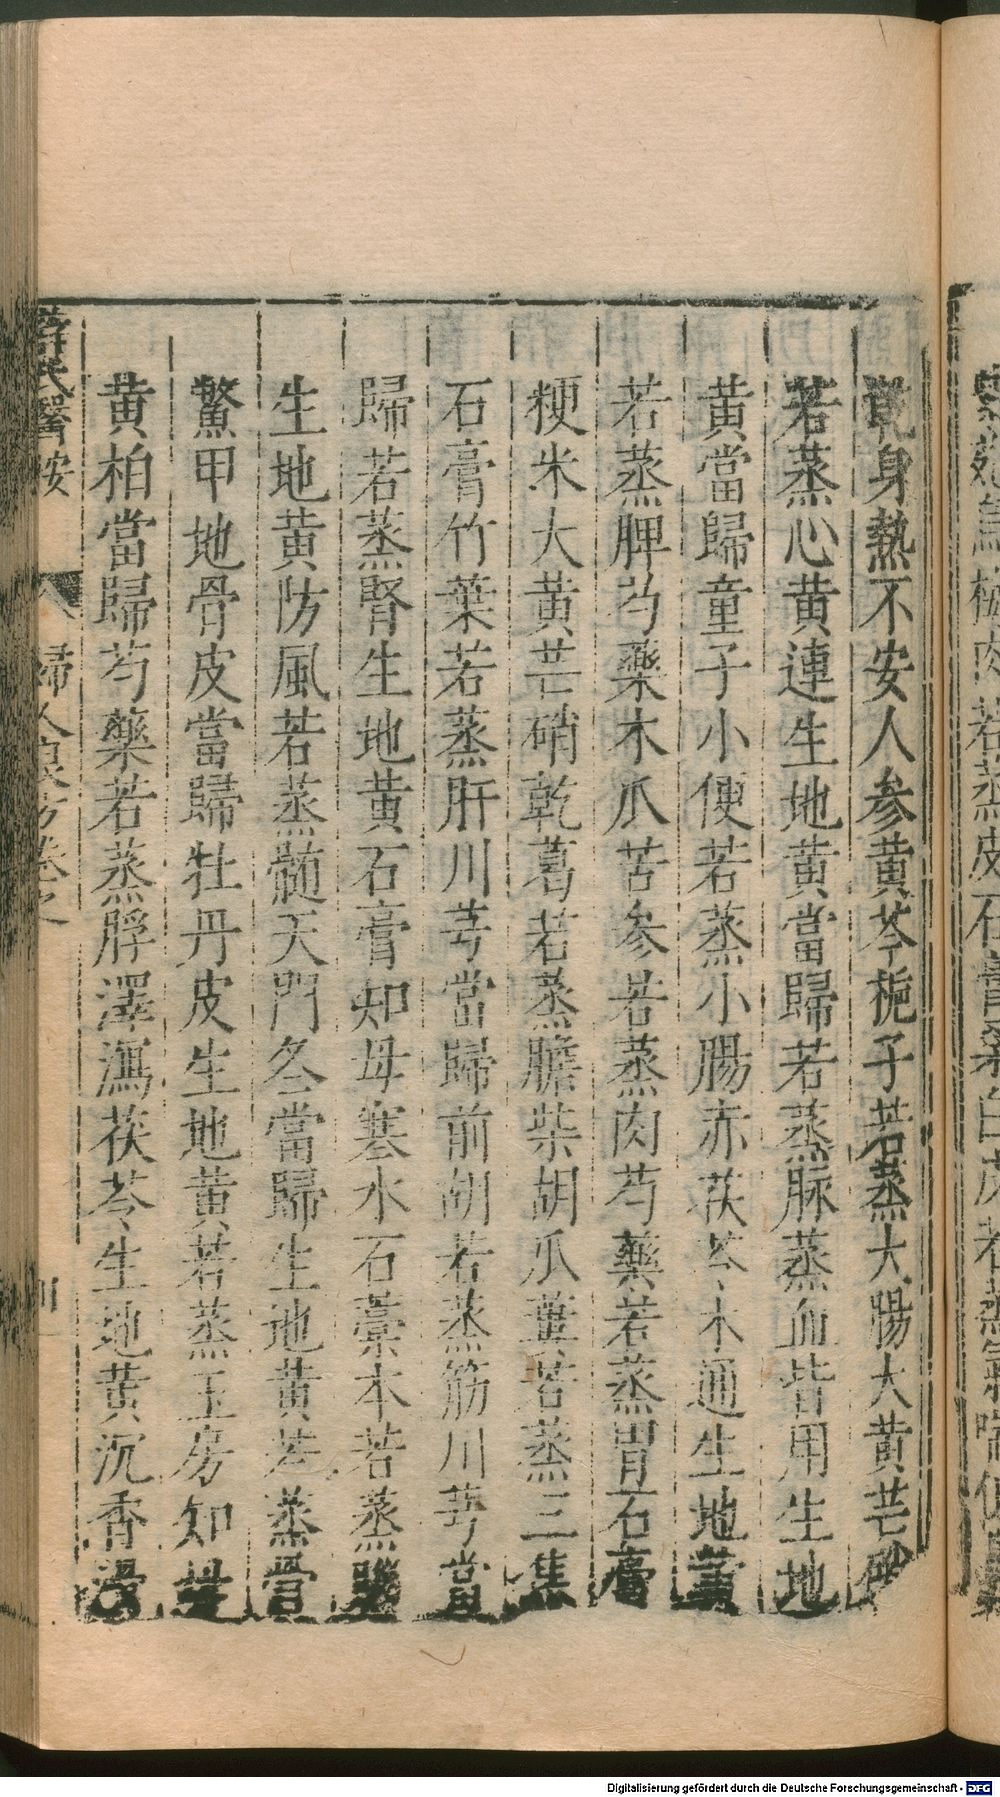 乾身熱不安人參黃芩梔子若蒸大腸大黃芒硝
若蒸心黃連生地黃當歸若蒸脉蒸血皆用生地
黃當歸童子小便若蒸小腸赤茯苓木通生地黃
若蒸脾芍藥木瓜苦參若蒸肉芍藥若蒸胃石膏
粳米大黃芒硝乾葛若蒸膽柴胡瓜蔞若蒸三焦
石膏竹葉若蒸肝川芎當歸前胡若蒸筋川芎當
歸若蒸腎生地黃石膏知母寒水石藁本若蒸腦
生地黃防風若蒸髓天門冬當歸生地黃若蒸骨
鱉甲地骨皮當歸牡丹皮生地黃若蒸玉房知母
黃柏當歸芍藥若蒸脬澤瀉茯苓生地黃沉香滑
薛氏醫按 婦人良方卷之
Digitalisierung gefördert durch die Deutsche Forschungsgemeinschaft - DFG